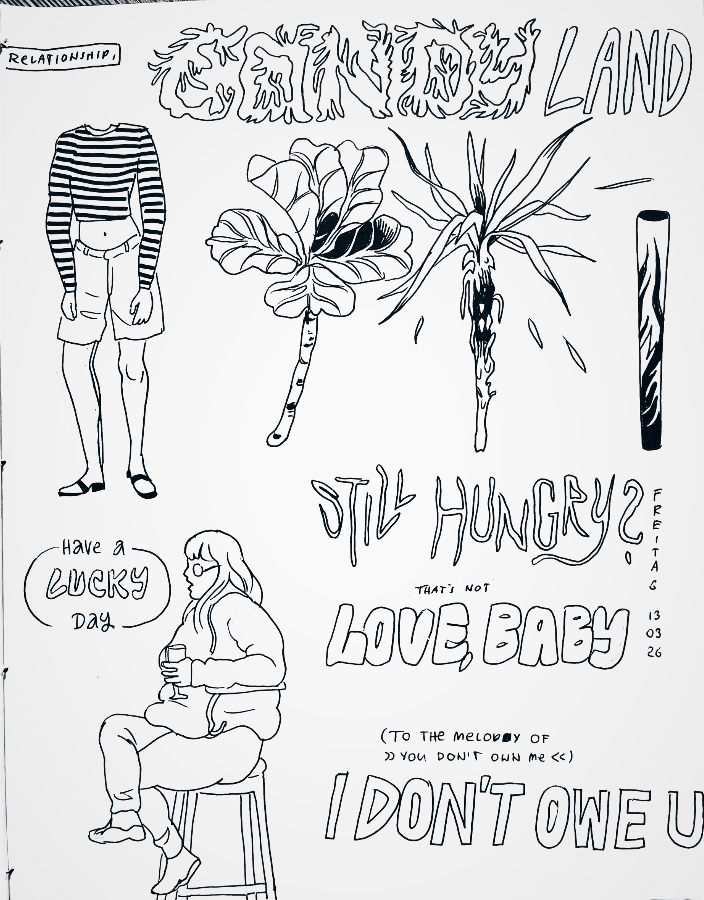 RELATIONSHIP,
CANDY LAND
STILL HUNGRY?
FREITAG
13
03
26
Have a
LUCKY
Day
THAT'S NOT
LOVE, BABY
(TO THE MELODY OF
>> YOU DON'T OWN Me <<)
I DON'T OWE U